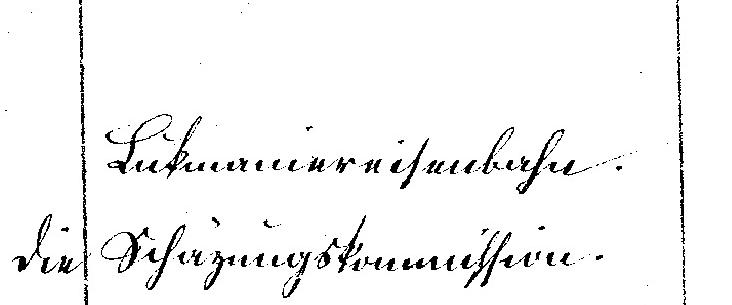 Lukmaniereisenbahn.
Die Schäzungskommission.